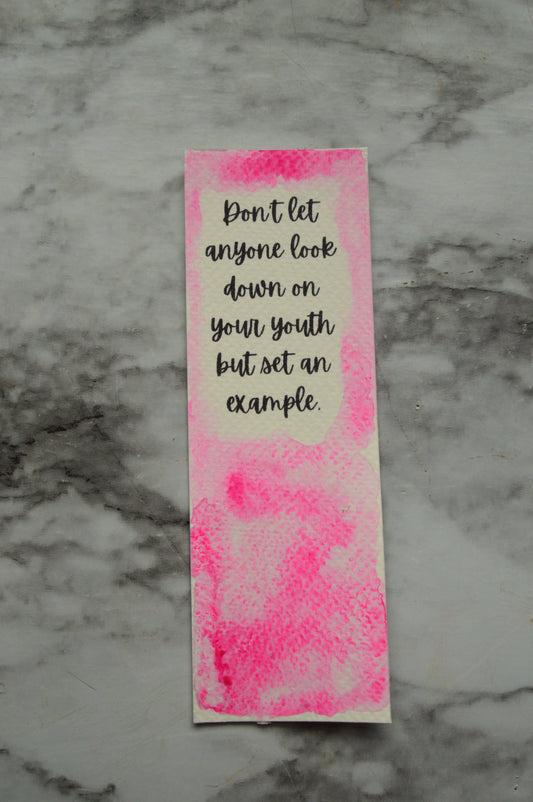 Don't let
anyone look
down on
your youth
but set an
example.